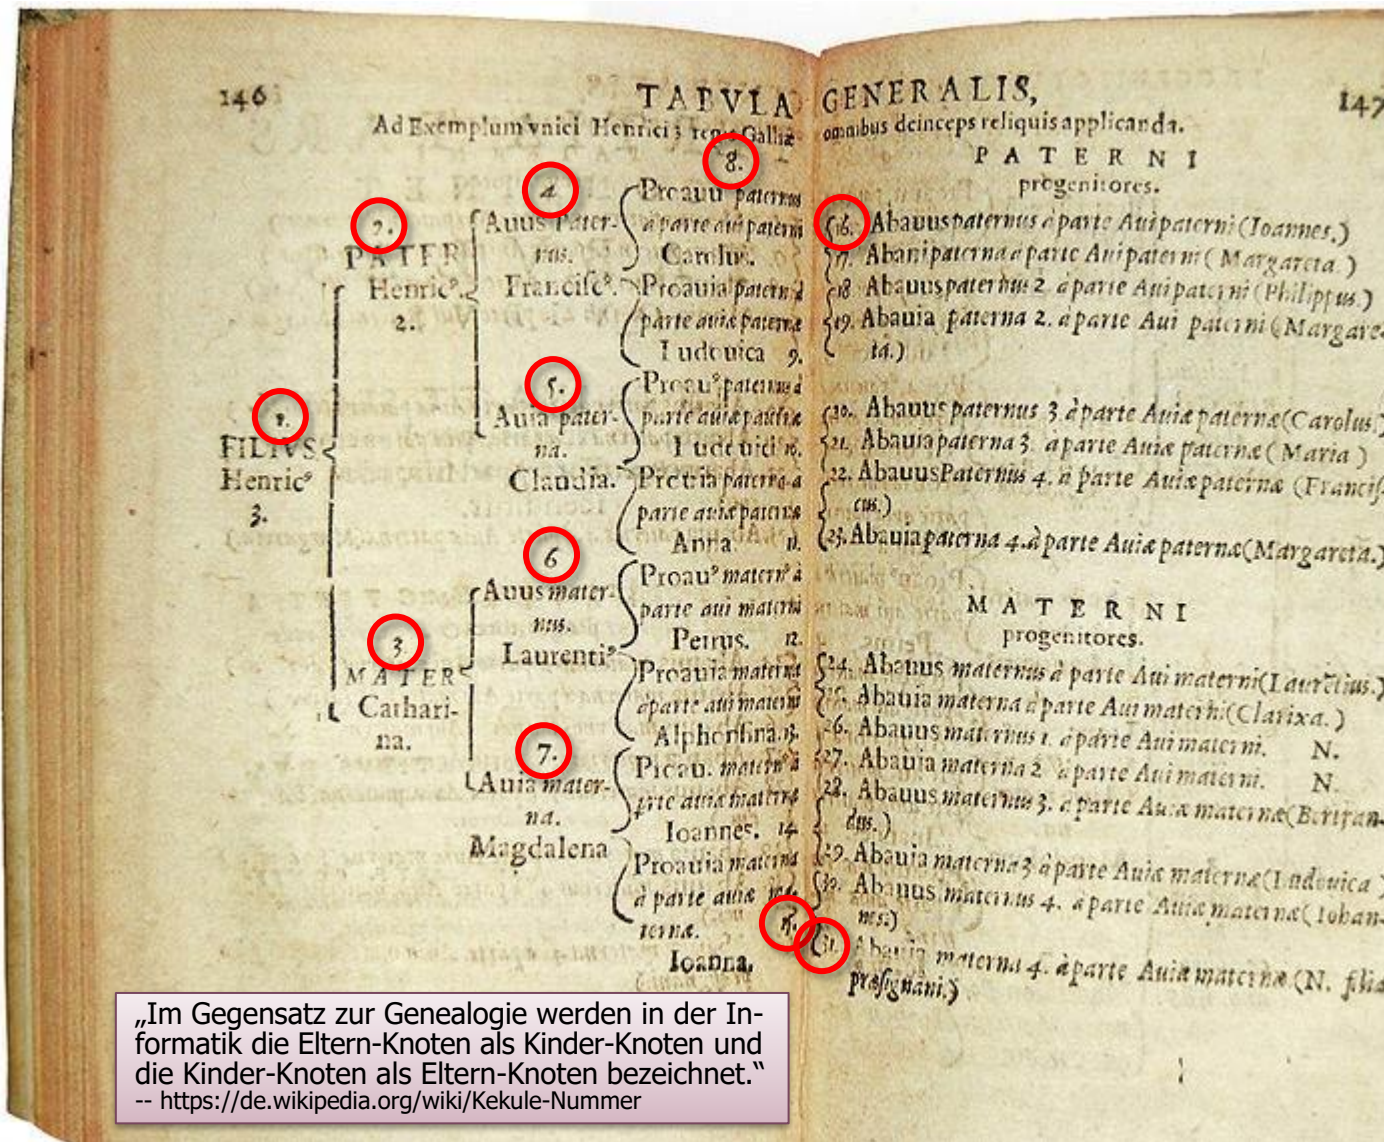 146
TABVLA GENERALIS,
147
Ad Exemplum vnici Henrici 3 regis Galliæ omnibus deinceps reliquis applicanda.
1.
FILIVS
Henric⁹
3.
2.
PATER
Henric⁹.
2.
3
MATER
Cathari-
na.
4
Auus Pater-
nus.
Francisc⁹.
5.
Auia pater-
na.
Claudia.
6
Auus mater-
nus.
Laurenti⁹
7.
Auia mater-
na.
Magdalena
8.
Proauu paternus
à parte aui paterni
Carolus.
Proauia patern à
parte auiæ paternæ
Ludouica 9.
Proau⁹ paternus à
parte auiæ paternæ
Ludouici 10.
paterna a
parte auiæ paternæ
Anna 11.
Proau⁹ matern⁹ à
parte aui materni
Petrus. 12.
Proauia materna
à parte aui materni
Alphonsina. 13.
Proau. matern⁹ à
parte auiæ maternæ
Ioannes. 14
Proauia materna
à parte auiæ ma-
ternæ. 15.
Ioanna,
PATERNI
progenitores.
16. Abauus paternus à parte Aui paterni (Ioannes.)
17. paterna a parte Aui paterni (Margareta.)
18 Abauus paternus 2. à parte Aui paterni (Philippus.)
19. Abauia paterna 2. à parte Aui paterni (Margare-
ta.)
20. Abauus paternus 3. à parte Auiæ paternæ (Carolus.)
21. Abauia paterna 3. à parte Auiæ paternæ (Maria)
22. Abauus Paternus 4. à parte Auiæ paternæ (Francis-
cus.)
23. Abauia paterna 4. à parte Auiæ paternæ (Margareta.)
MATERNI
progenitores.
24. Abauus maternus à parte Aui materni (Laurētius.)
25. Abauia materna à parte Aui materni (Clarixa.)
26. Abauus maternus 1. à parte Aui materni. N.
27. Abauia materna 2 à parte Aui materni. N.
28. Abauus maternus 3. à parte Auiæ maternæ (Bertran-
dus.)
29. Abauia materna 3 à parte Auiæ maternæ (Ludouica)
30. Abauus maternus 4. à parte Auiæ maternæ (Iohan-
nes.)
31. Abauia materna 4. à parte Auiæ maternæ (N. filia
præsignani.)
„Im Gegensatz zur Genealogie werden in der In-
formatik die Eltern-Knoten als Kinder-Knoten und
die Kinder-Knoten als Eltern-Knoten bezeichnet.“
-- https://de.wikipedia.org/wiki/Kekule-Nummer